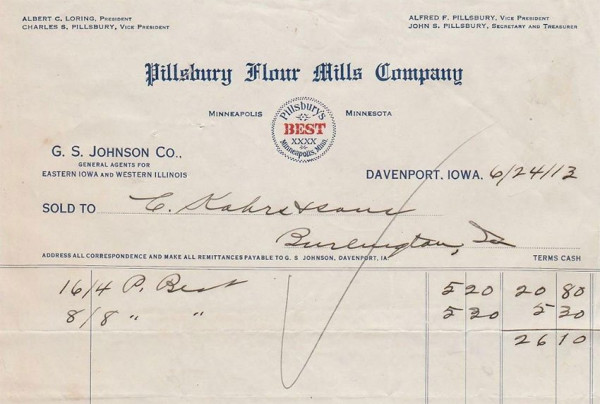 ALBERT C. LORING, PRESIDENT
CHARLES S. PILLSBURY, VICE PRESIDENT
ALFRED F. PILLSBURY, VICE PRESIDENT
JOHN S. PILLSBURY, SECRETARY AND TREASURER
Pillsbury Flour Mills Company
MINNEAPOLIS MINNESOTA
Pillsbury's
BEST
XXXX
Minneapolis, Minn.
G. S. JOHNSON CO.,
GENERAL AGENTS FOR
EASTERN IOWA AND WESTERN ILLINOIS
DAVENPORT, IOWA, 6/24/13
SOLD TO C. Kahrs & sons
Burlington, Ia
ADDRESS ALL CORRESPONDENCE AND MAKE ALL REMITTANCES PAYABLE TO G. S. JOHNSON, DAVENPORT, IA. TERMS CASH
16/4 P. Best 5 20 20 80
8/8 " " 5 30 5 30
26 10